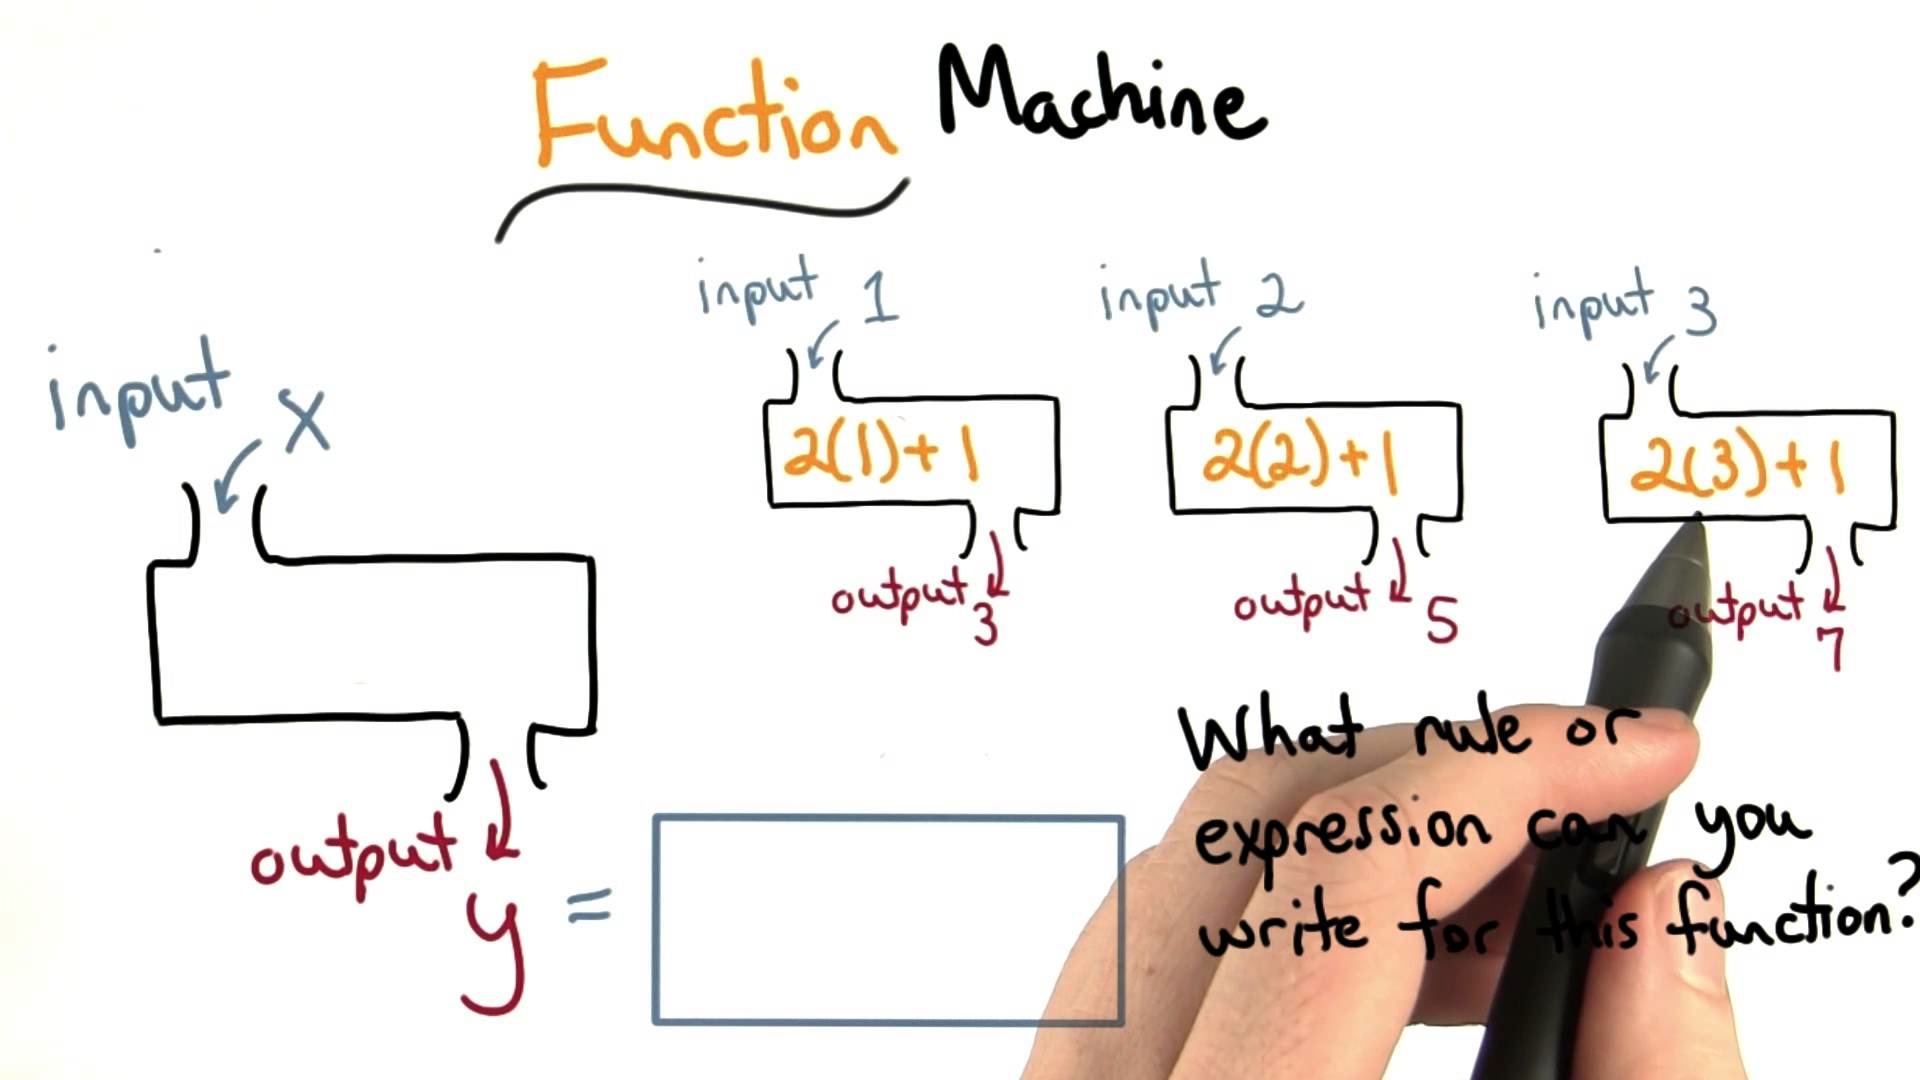 Function Machine
input x
output
y =
input 1
2(1)+1
output 3
input 2
2(2)+1
output 5
input 3
2(3)+1
output 7
What rule or
expression can you
write for this function?